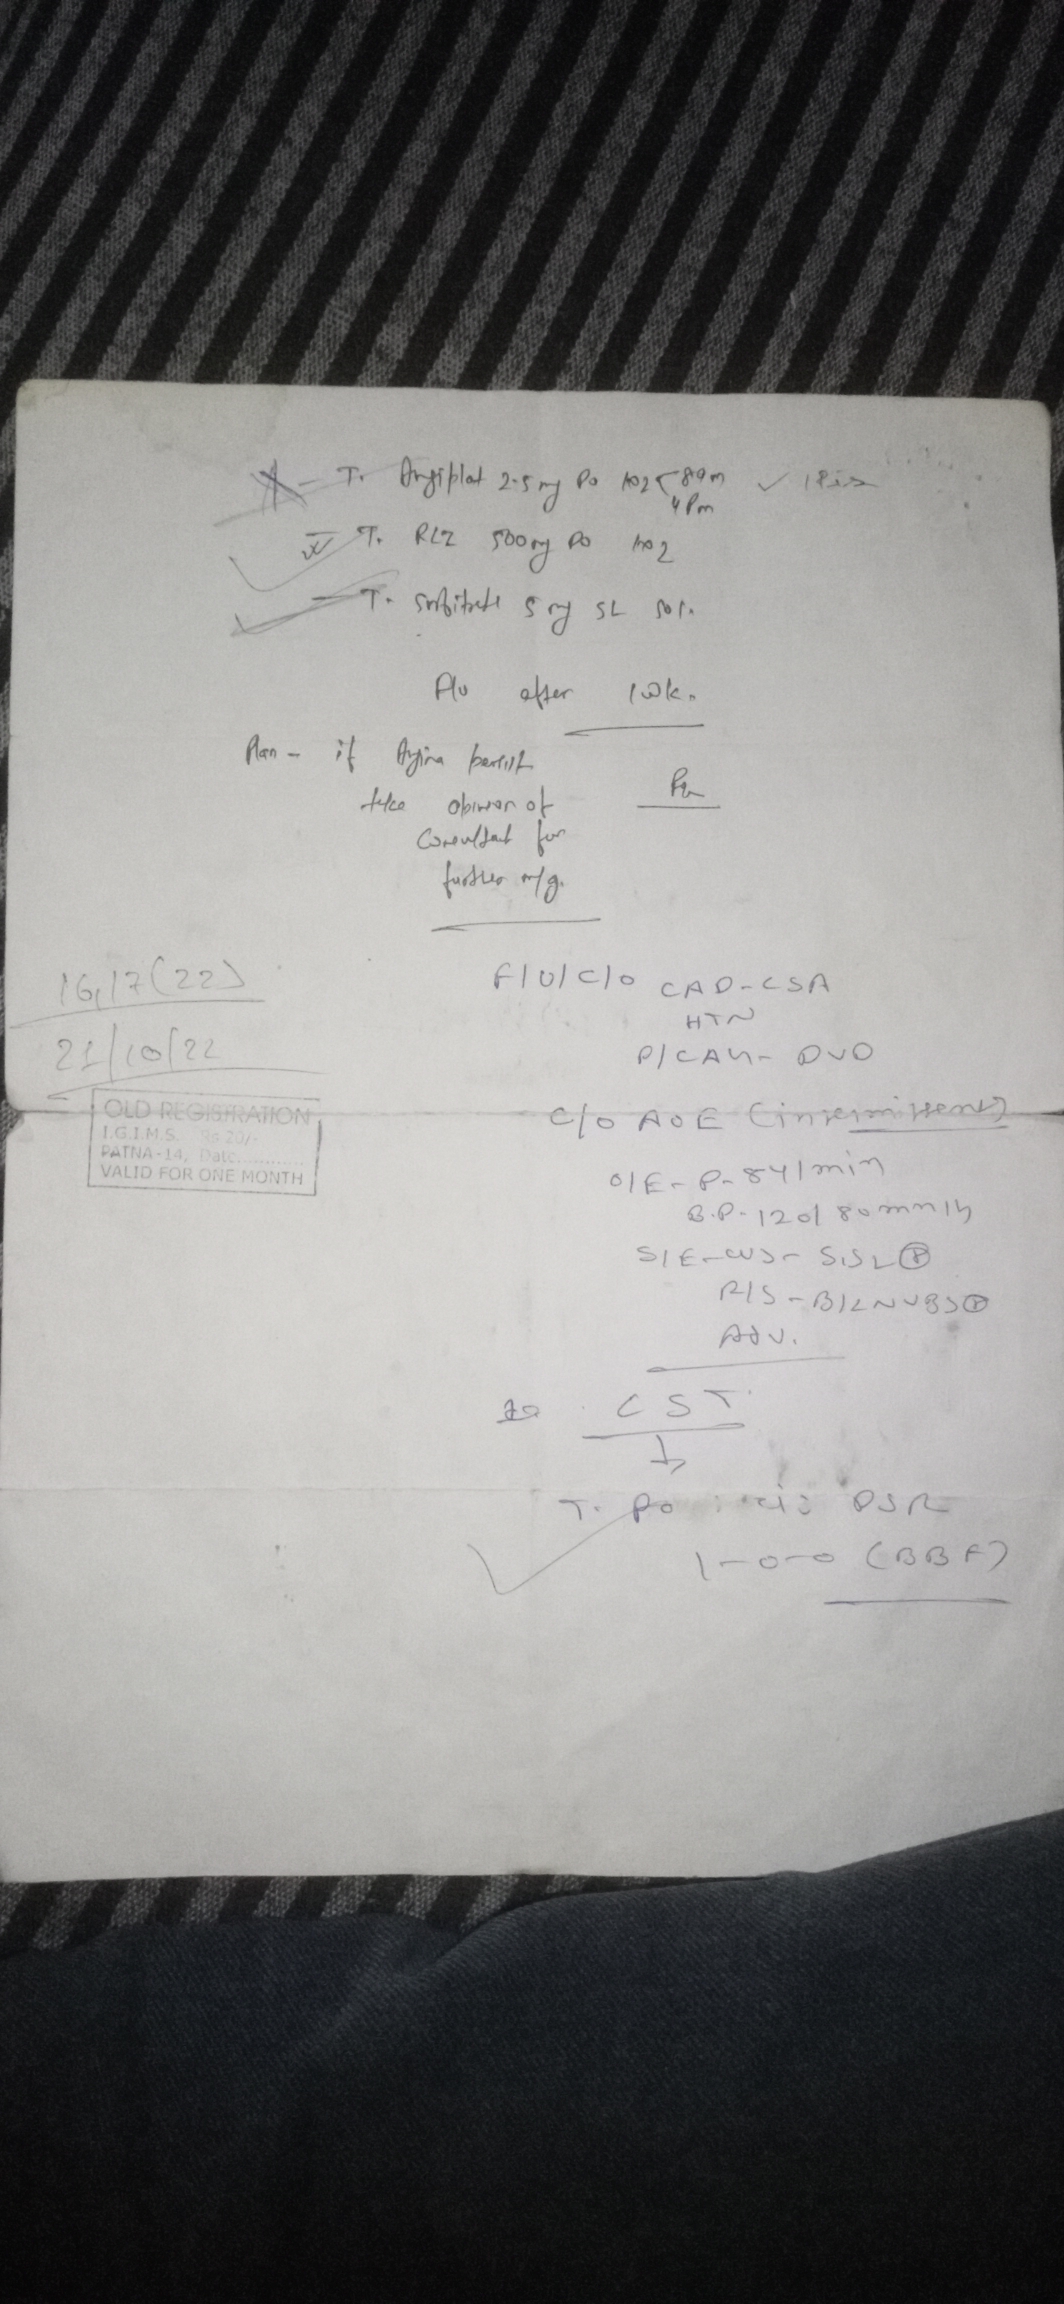 T. Angiplat 2.5 mg Po 8am
4 Pm
T. RLZ 500mg Po
T. Sorbitrate 5 mg SL SOS.
after 1 wk.
Plan - if Angina persist
take opinion of
Consultant for
further m/g.
16,17(22)
21/10/22
OLD REGISTRATION
I.G.I.M.S. Rs 20/-
PATNA-14, Date............
VALID FOR ONE MONTH
F/U/C/O CAD-CSA
HTN
P/CAG- DVD
C/O AOE (intermittent)
O/E - P- 84/min
B.P- 120/80mmHg
S/E-CVS- S1S2 (P)
R/S - B/L NVBS (P)
Adv.
CST
T. DSR
1-0-0 (BBF)